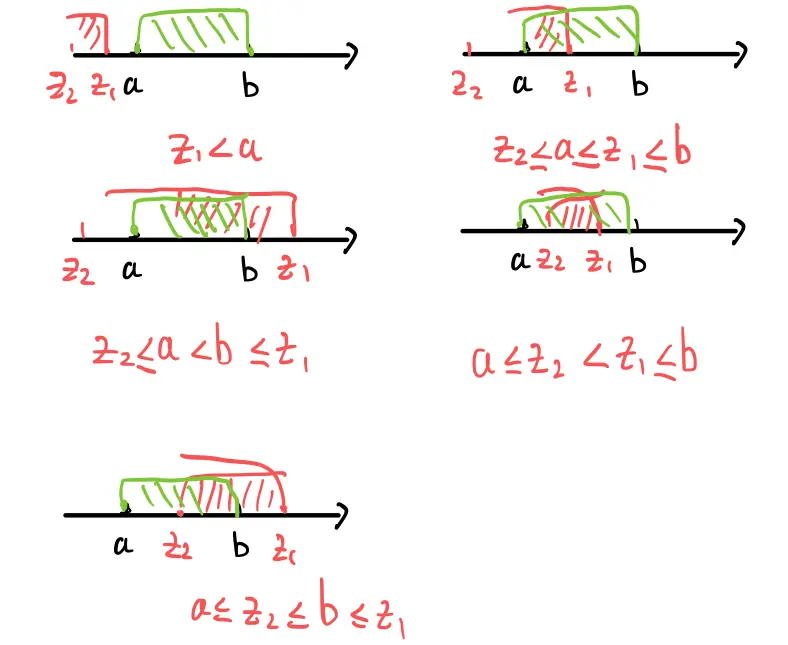 z₂ z₁ a b
z₂ a z₁ b
z₁ < a
z₂ ≤ a ≤ z₁ ≤ b
z₂ a b z₁
a z₂ z₁ b
z₂ ≤ a < b ≤ z₁
a ≤ z₂ < z₁ ≤ b
a z₂ b z₁
a ≤ z₂ ≤ b ≤ z₁